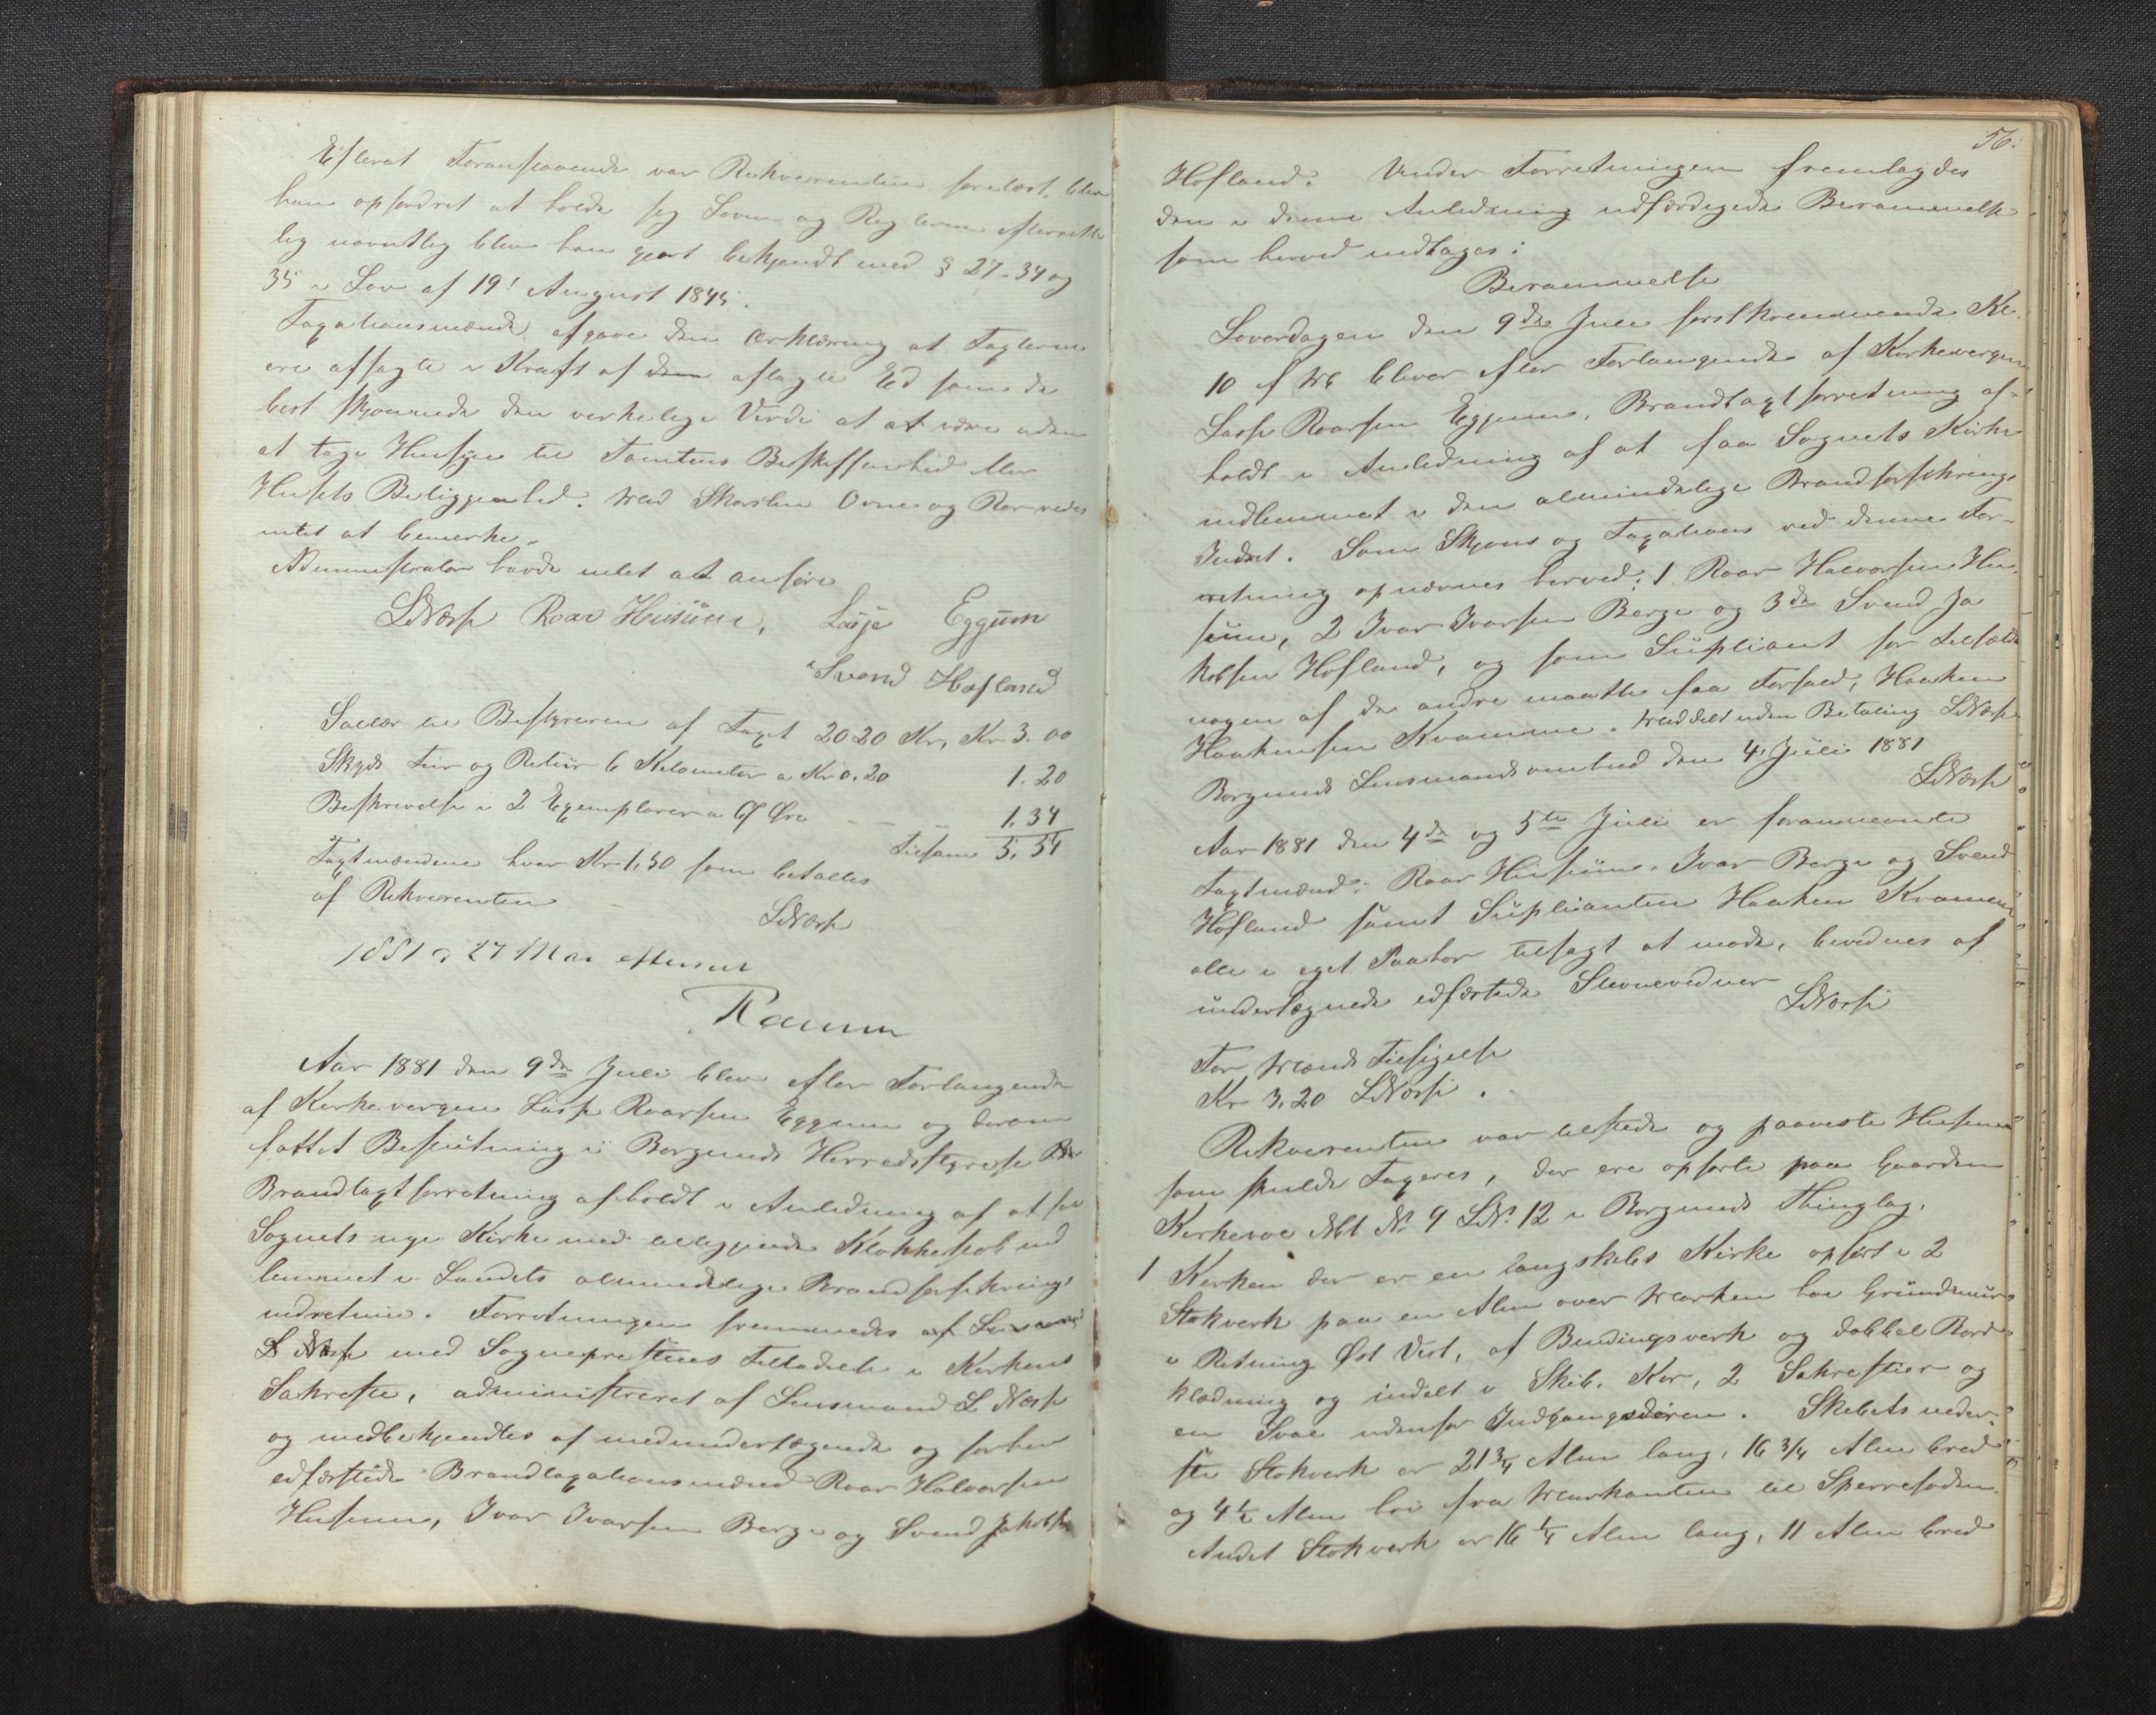 Efterat Foranstaaende var Rekvirenten forelæst, blev
han opfordret at holde sig Loven og Reglerne efterrette
lig navnlig blev han gjort bekjendt med § 27-34 og
35 i Lov af 19! August 1845.
Taxationsmænd afgave den Erklæring at Taxterne
ere afsagte i Kraft af dem aflagte Ed som de
best skjønnede den verkelige Verdi at at være uden
at tage Hensyn til Tomtens Beskaffenhed eller
Husets Beliggenhed. Ved Skorsten Ovne og Rør vides
intet at bemerke.
Administrator havde intet at anføre
LNæsse Roar Husum, Lasse Eggum
Svend Hofland
Sallær til Bestyreren af Taxt 2020 Kr, Kr 3.00
Skyds Tur og Retur 6 Kilometer a Kr 0.20 1.20
Beskrivelse i 2 Exemplarer a 67 Øre - - - 1.34
Tilsam 5.54
Taxtmændene hver Kr 1,50 som betalles
af Rekvirenten
LNæsse
1881 27 Mai efterseet
Aar 1881 den 9de Juli blev efter Forlangende
af Kirkevergen Lasse Roarsen Eggum og derom
fattet Beslutning i Borgunds Herredsstyrelse
Brandtaxtforretning afholdt i Anledning af at faa
Sognets nye Kirke med tilliggende Klokkestol ind
lemmet i Landets almindelige Brandforsikrings
indretning. Forretningen fremmedes af Lensmand
L Næsse med Sogneprestens Tilladelse i Kirkens
Sakreste, administreret af Lensmand L Næsse
og medbekjendtes af medundertegnede og forhen
edfæstede Brandtaxationsmænd Roar Halvorsen
Husum, Ivar Ivarsen Berge og Svend Jakobsen
56.
Hofland. Under Forretningen fremlagdes
den i denne Anledning udfærdigede Berammelse
som herved indtages:
Berammelse
Løverdagen den 9de Juli førstkommende Kl.
10 f M bliver efter Forlangende af Kirkevergen
Lasse Roarsen Eggum, Brandtaxtforretning af-
holdt i Anledning af at faa Sognets Kirke
indlemmet i den almindelige Brandforsikrings
Indret. Som Skjøns og Taxations ved denne For-
retning opnævnes herved: 1 Roar Halvorsen Hu-
sum, 2 Ivar Ivarsen Berge og 3de Svend Ja
kobsen Hofland, og som Supliant for tilfælde
nogen af de andre maatte faa Forfald, Haaken
Haakensen Kvamme. Meddelt uden Betaling LNæsse
Borgunds Lensmandsombud den 4. Juli 1881
LNæsse
Aar 1881 den 4de og 5te Juli er forannævnte
Taxtmænd: Roar Husum, Ivar Berge og Svend
Hofland samt Suplianten Haaken Kvamme
alle i eget Paahør tilsagt at møde, bevidnes af
undertegnede edfæstede Stevnevidner
LNæsse
For Mænds Tilsigelse
Kr 3,20 LNæsse.
Rekvirenten var tilstede og paaviste Husene
som skulde Taxeres, der ere opførte paa Gaarden
Kirkevol Mt No 9 LNo 12 i Borgunds Thinglag.
1 Kirken der er en langskibs Kirke opført i 2
Stokverk paa en Alen over Marken høi Grundmur
i Retning Øst Vest, af Bindingsverk og dobbel Bord-
klædning og indelt i Skib, Kor, 2 Sakrestier og
en Sval udenfor Indgangsdøren. Skibets neder-
ste Stokverk er 21 3/4 Alen lang, 16 3/4 Alen bred
og 4 1/2 Alen høi fra Murkanten til Sperrefoden.
Andet Stokverk er 16 1/4 Alen lang, 11 Alen bred